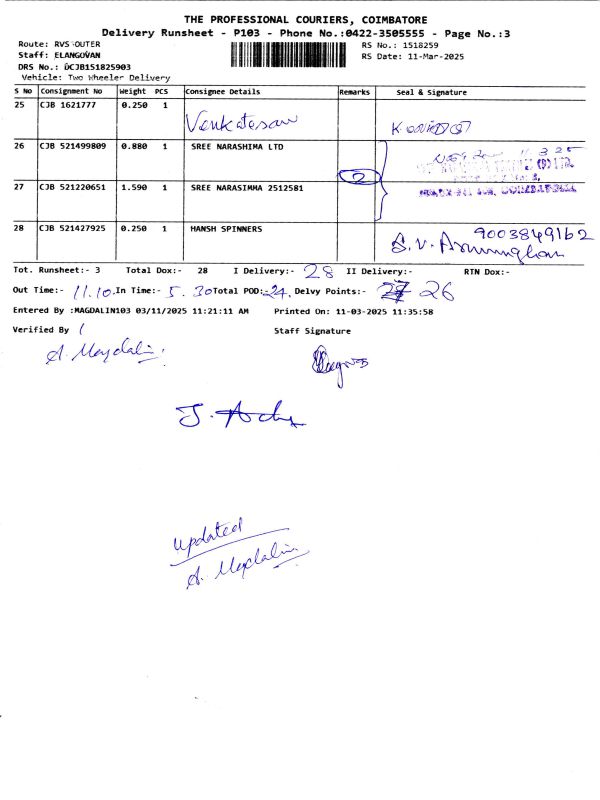 THE PROFESSIONAL COURIERS, COIMBATORE
Delivery Runsheet - P103 - Phone No.:0422-3505555 - Page No.:3
Route: RVS OUTER RS No.: 1518259
Staff: ELANGOVAN RS Date: 11-Mar-2025
DRS No.: DCJB151825903
Vehicle: Two Wheeler Delivery
S No Consignment No Weight PCS Consignee Details Remarks Seal & Signature
25 CJB 1621777 0.250 1
Venkatesan
26 CJB 521499809 0.880 1 SREE NARASHIMA LTD
2
27 CJB 521220651 1.590 1 SREE NARASIMMA 2512581
28 CJB 521427925 0.250 1 HANSH SPINNERS 9003849162
S. V. Arumugham
Tot. Runsheet:- 3 Total Dox:- 28 I Delivery:- 28 II Delivery:- RTN Dox:-
Out Time:- 11.10, In Time:- 5.30 Total POD:- 24. Delvy Points:- 27 26
Entered By :MAGDALIN103 03/11/2025 11:21:11 AM Printed On: 11-03-2025 11:35:58
Verified By Staff Signature
A. Magdalin
updated
A. Magdalin